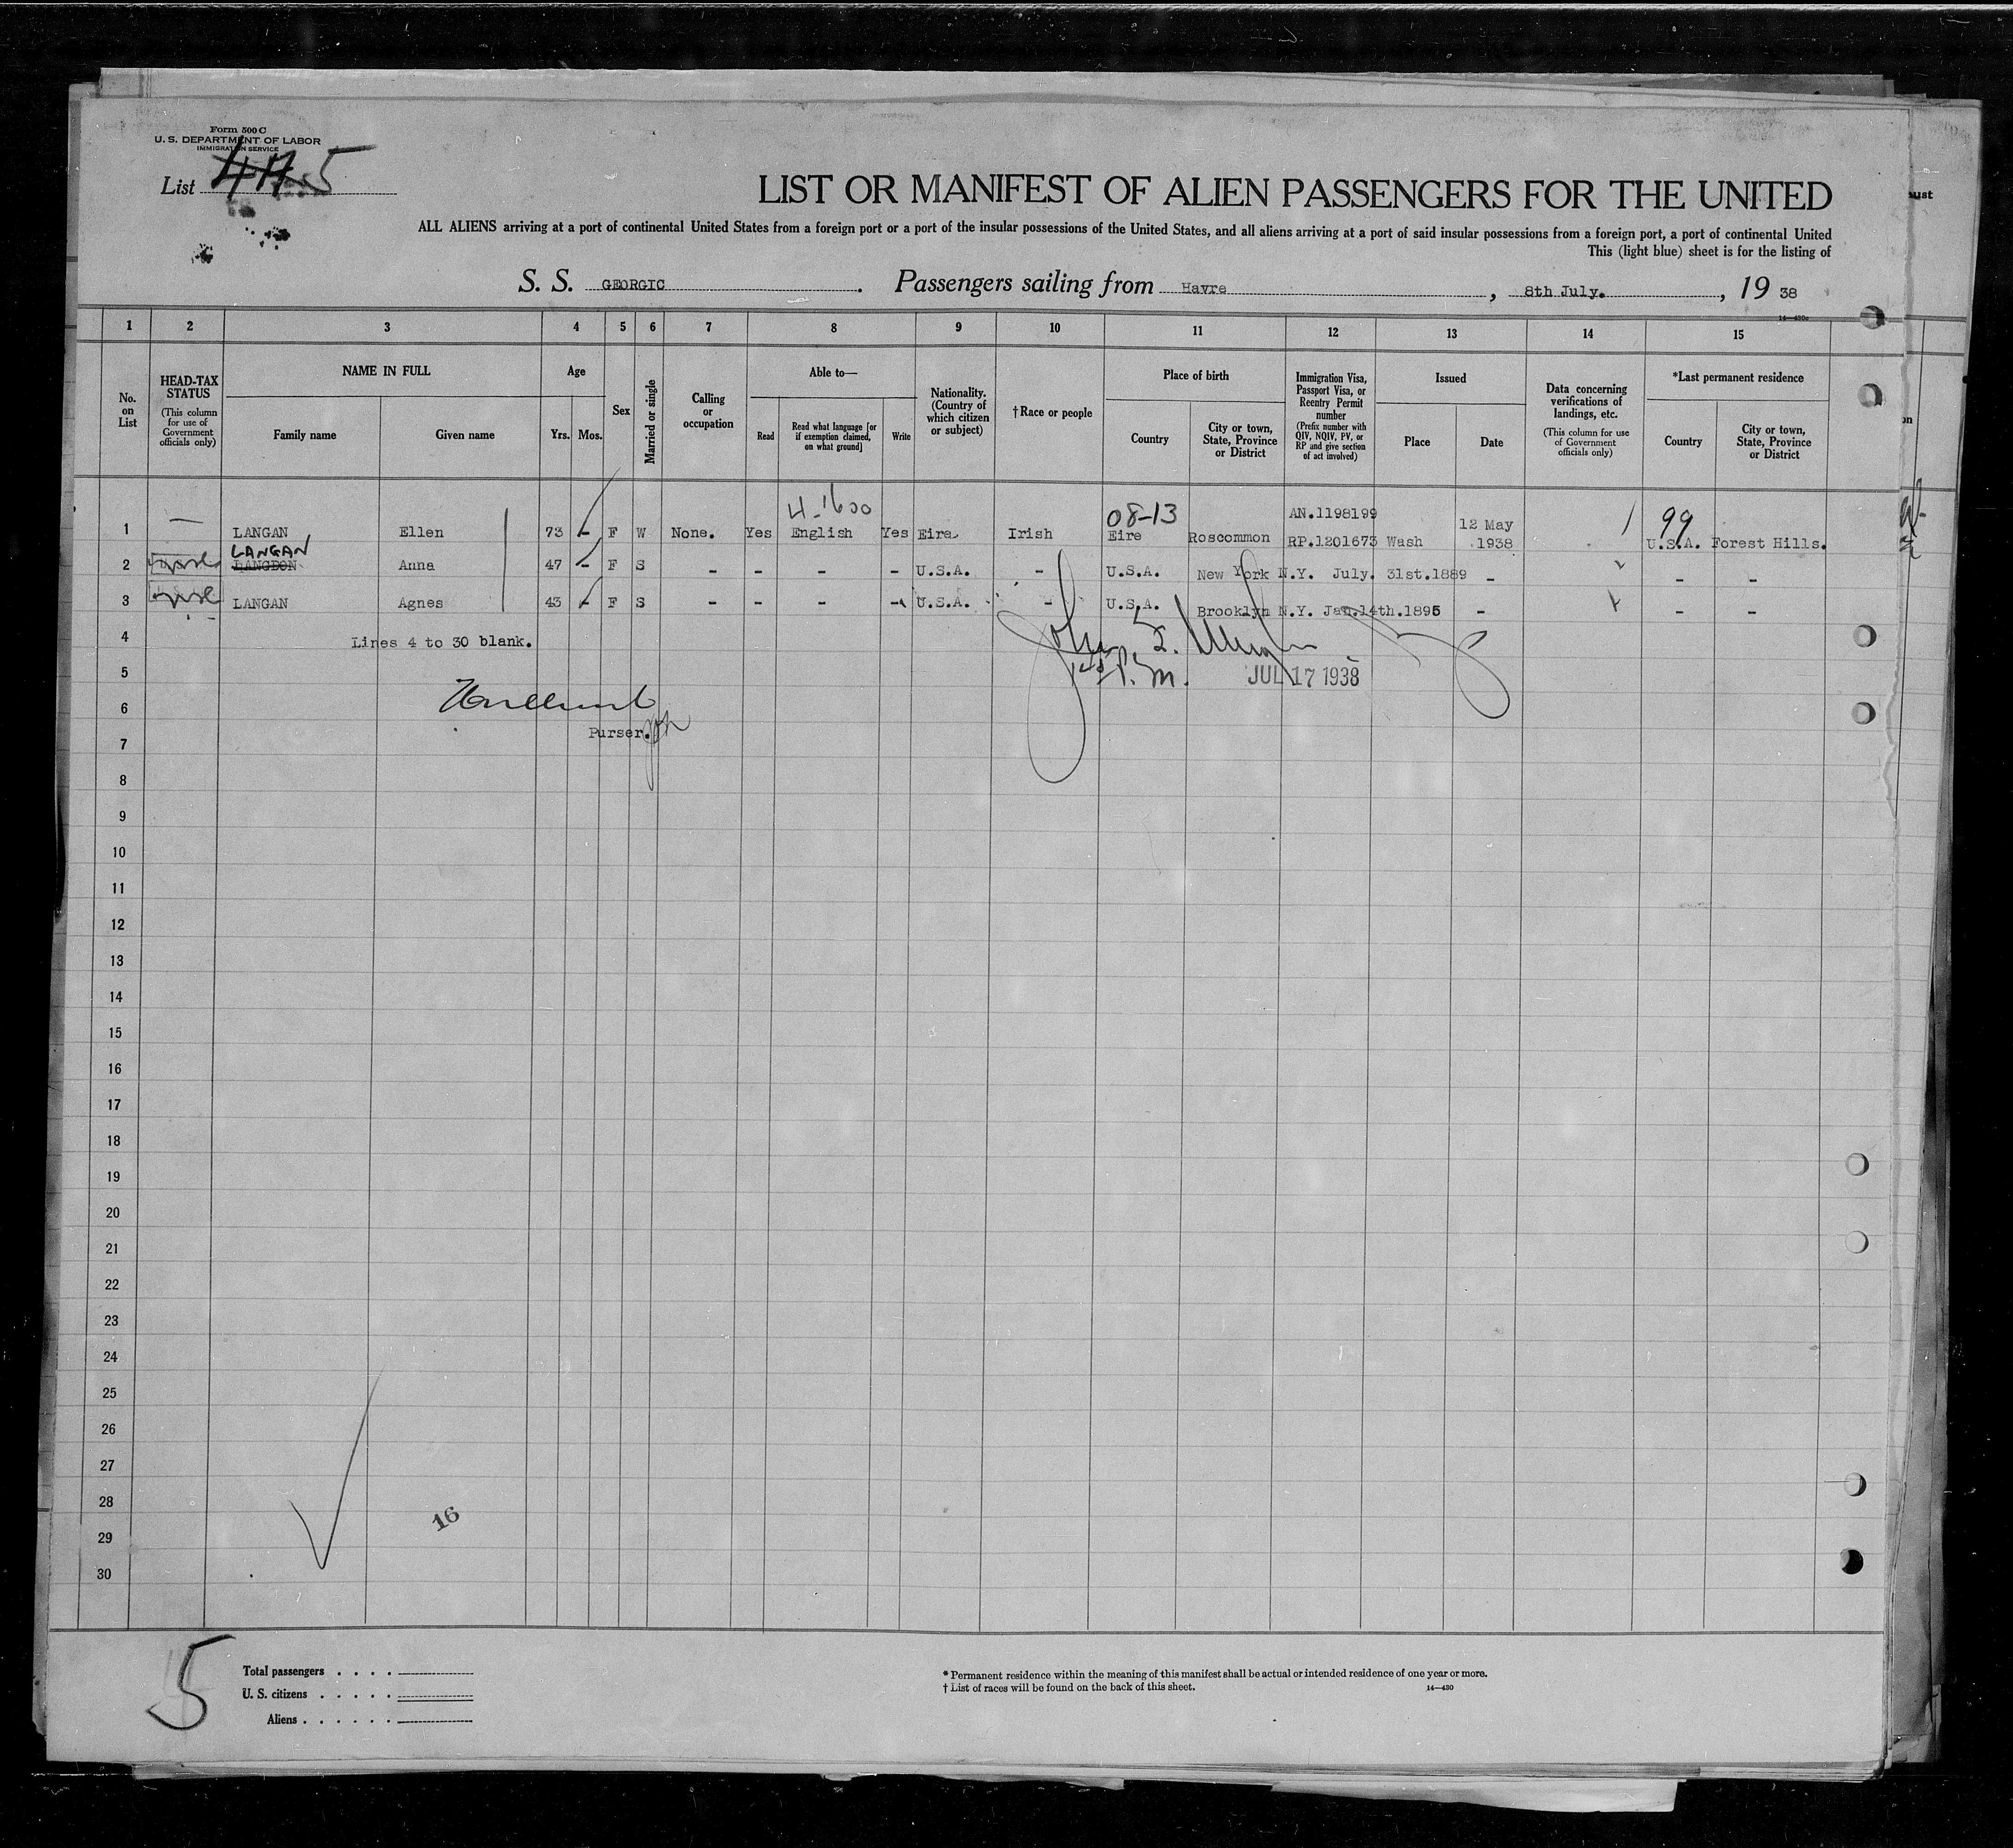 Form 500 C
U. S. DEPARTMENT OF LABOR
IMMIGRATION SERVICE
List 4A 5
LIST OR MANIFEST OF ALIEN PASSENGERS FOR THE UNITED
ALL ALIENS arriving at a port of continental United States from a foreign port or a port of the insular possessions of the United States, and all aliens arriving at a port of said insular possessions from a foreign port, a port of continental United
This (light blue) sheet is for the listing of
S. S. GEORGIC. Passengers sailing from Havre, 8th July., 19 38
14—430c
1 2 3 4 5 6 7 8 9 10 11 12 13 14 15
No. on List
HEAD-TAX STATUS
(This column for use of Government officials only)
NAME IN FULL
Family name
Given name
Age
Yrs. Mos.
Sex
Married or single
Calling or occupation
Able to—
Read
Read what language [or if exemption claimed, on what ground]
Write
Nationality. (Country of which citizen or subject)
†Race or people
Place of birth
Country
City or town, State, Province or District
Immigration Visa, Passport Visa, or Reentry Permit number
(Prefix number with QIV, NQIV, PV, or RP and give section of act involved)
Issued
Place
Date
Data concerning verifications of landings, etc.
(This column for use of Government officials only)
*Last permanent residence
Country
City or town, State, Province or District
4-1600
08-13
AN.1198199
99
1 LANGAN Ellen 73 - F W None. Yes English Yes Eire. Irish Eire Roscommon RP.1201673 Wash 12 May 1938 U.S.A. Forest Hills.
LANGAN
2 LANGDON Anna 47 - F S - - - - U.S.A. - U.S.A. New York N.Y. July. 31st.1889 - - -
3 LANGAN Agnes 43 - F S - - - - U.S.A. - U.S.A. Brooklyn N.Y. Jan.14th.1895 - - -
4 Lines 4 to 30 blank.
5 P.M. JUL 17 1938
6
Purser.
7
8
9
10
11
12
13
14
15
16
17
18
19
20
21
22
23
24
25
26
27
28
16
29
30
5
Total passengers . . . .
U. S. citizens . . . . .
Aliens . . . . . .
* Permanent residence within the meaning of this manifest shall be actual or intended residence of one year or more.
† List of races will be found on the back of this sheet. 14—430